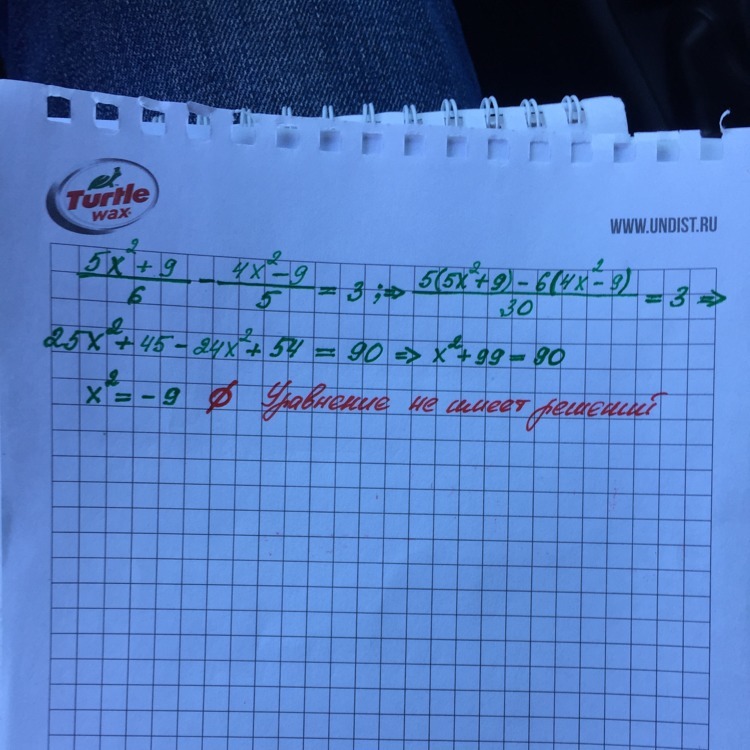 Turtle
wax
WWW.UNDIST.RU
(5x²+9)/6 - (4x²-9)/5 = 3 ;⇒ (5(5x²+9)-6(4x²-9))/30 = 3 ⇒
25x²+45-24x²+54 = 90 ⇒ x²+99=90
x²=-9 ∅ Уравнение не имеет решений